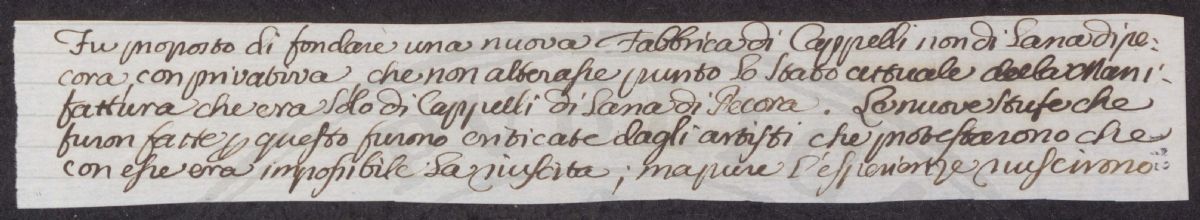 Fu proposto di fondare una nuova Fabbrica di Cappelli non di Lana di pe:
cora, con privativa che non alterasse punto lo stato attuale della Mani:
fattura che era solo di Cappelli di Lana di Pecora. Le nuove stufe che
furon fatte p questo furono criticate dagli artisti che protestarono che
con esse era impossibile la riuscita; ma pure l'esperienze riuscirono